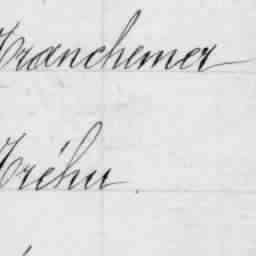 Tranchemer
Tréhu